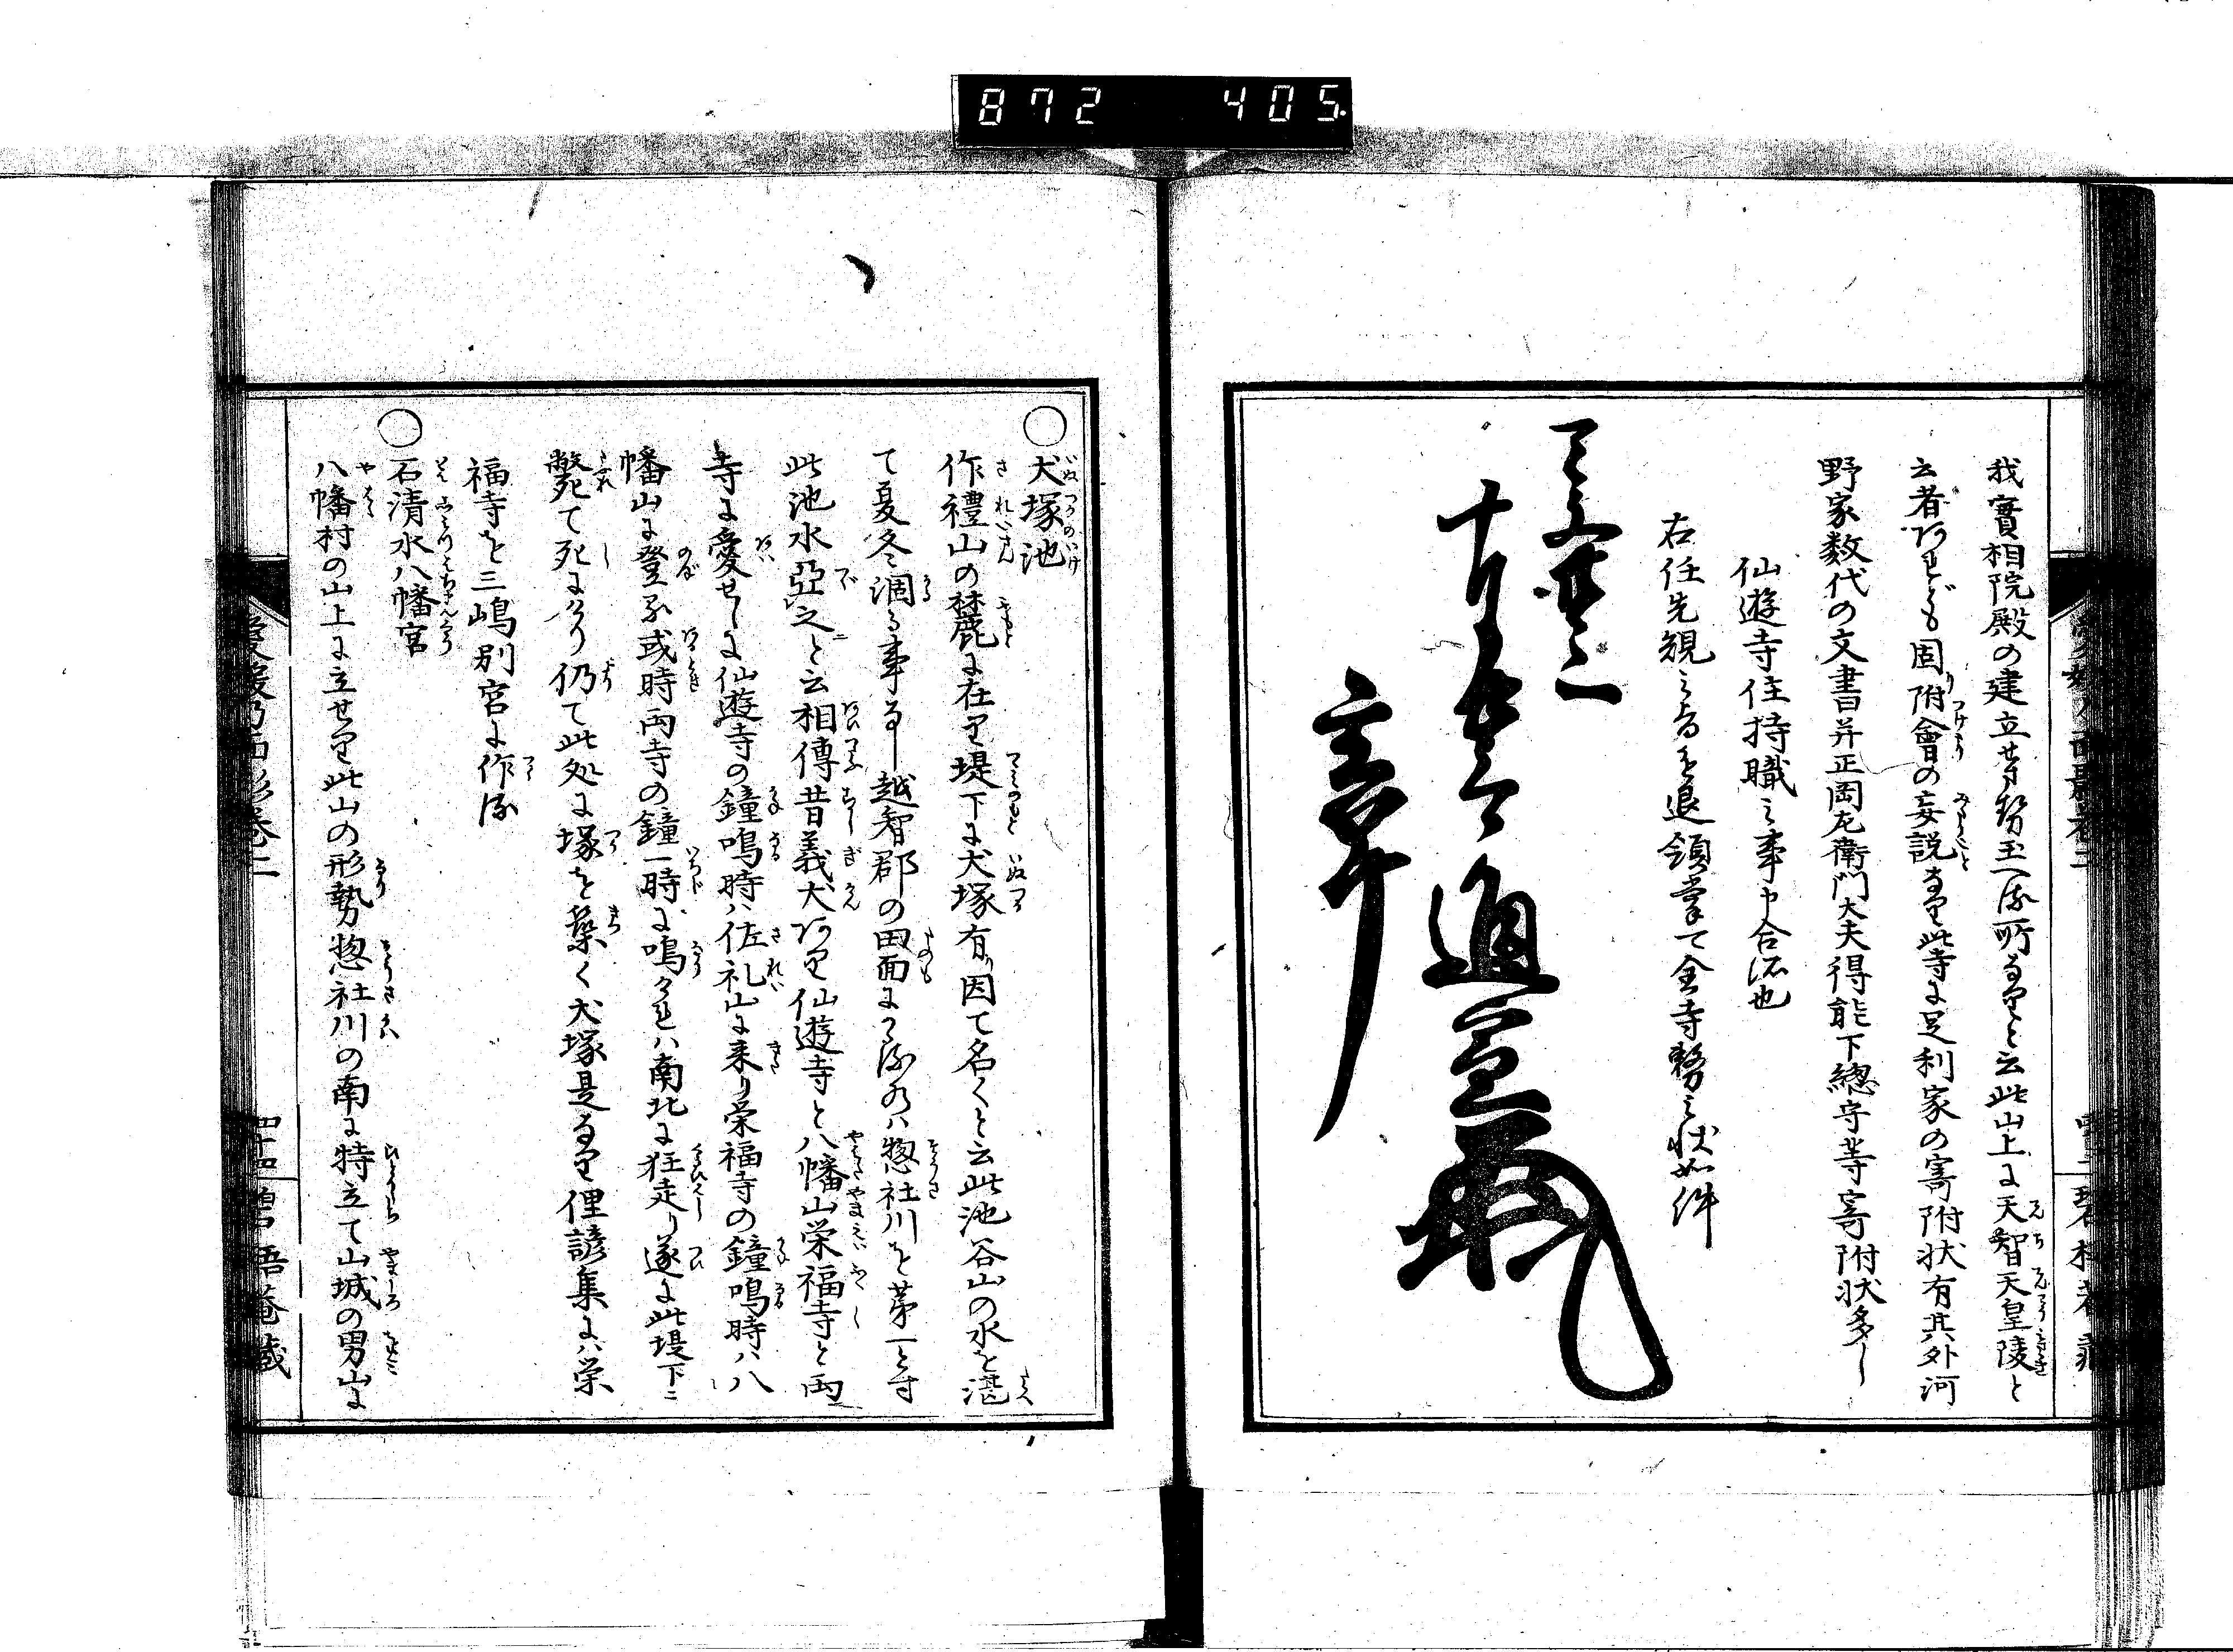 872 405
我實相院殿の建立せさせ玉へる所なりと云此山上に天智天皇陵と
云者あれども固附會の妄説なり此寺に足利家の寄附状有其外河
野家数代の文書并正岡左衛門大夫得能下總守等寄附状多し
仙遊寺住持職之事申合決也
右任先規之旨進退領掌て全寺務之状如件
通宣
犬塚池
作禮山の麓に在り堤下に犬塚有り因て名くと云此池谷山の水を湛
て夏冬涸る事なし越智郡の田面にかゝる乃ハ惣社川を第一とす
此池水亞之と云相傳昔義犬あり仙遊寺と八幡山栄福寺と両
寺に愛せしに仙遊寺の鐘鳴時ハ佐礼山に来り栄福寺の鐘鳴時ハ八
幡山に登る或時両寺の鐘一時に鳴けれハ南北に狂走り遂に此堤下ニ
斃て死にけり仍て此処に塚を築く犬塚是なり俚諺集にハ栄
福寺を三嶋別宮に作る
石清水八幡宮
八幡村の山上に立せり此山の形勢惣社川の南に特立て山城の男山に
愛媛乃面影巻二
四十四
碧梧菴蔵